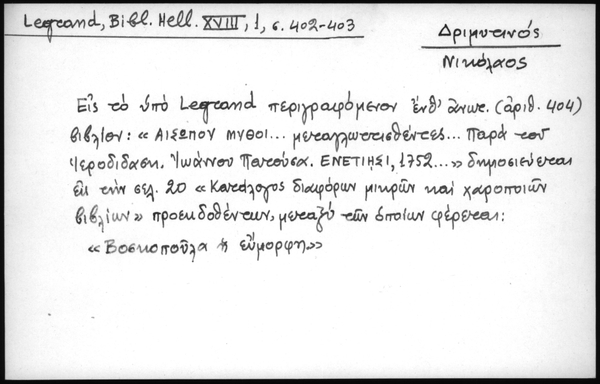 Legrand, Bibl. Hell. XVIII, 1, σ. 402-403
Δριμυτινός
Νικόλαος
Εἰς τό ὑπό Legrand περιγραφόμενον ἐνθ' ἄνωτ. (ἀριθ. 404)
βιβλίον: « ΑΙΣΩΠΟΥ ΜΥΘΟΙ... μεταγλωττισθέντες... Παρά τοῦ
Ἱεροδιδασκ. Ἰωάννου Πατούσα. ΕΝΕΤΙΗΣΙ, 1752...» δημοσιεύεται
εἰς τήν σελ. 20 « Κατάλογος διαφόρων μικρῶν καί χαροποιῶν
βιβλίων» προεκδοθέντων, μεταξύ τῶν ὁποίων φέρεται:
« Βοσκοποῦλα ἡ εὔμορφη»